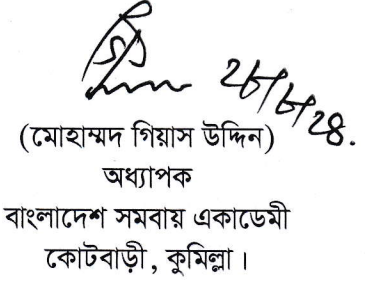 ২৮/৮/২৪.
(মোহাম্মদ গিয়াস উদ্দিন)
অধ্যাপক
বাংলাদেশ সমবায় একাডেমী
কোটবাড়ী, কুমিল্লা।